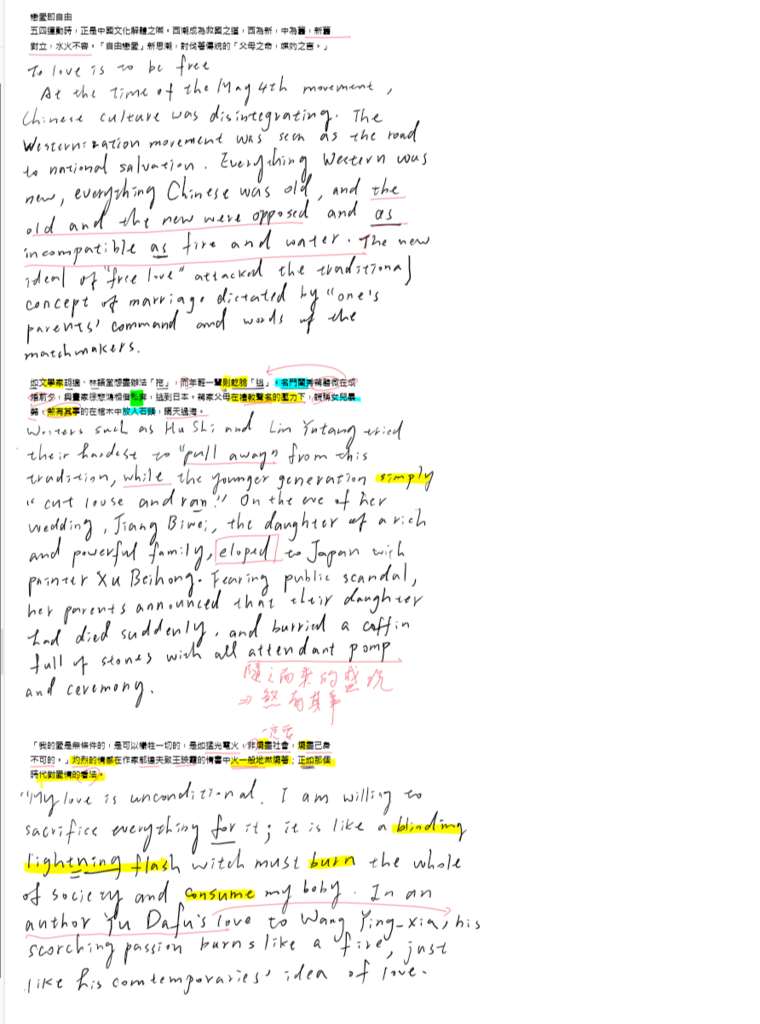 戀愛即自由
五四運動時，正是中國文化解體之際。西潮成為救國之道，西為新，中為舊，新舊
對立，水火不容。「自由戀愛」新思潮，討伐著傳統的「父母之命，媒妁之言。」
To love is to be free
At the time of the May 4th movement,
Chinese culture was disintegrating. The
Westernization movement was seen as the road
to national salvation. Everything Western was
new, everything Chinese was old, and the
old and the new were opposed and as
incompatible as fire and water. The new
ideal of "free love" attacked the traditional
concept of marriage dictated by "one's
parents' command and words of the
matchmakers.
如文學家胡適、林語堂想盡辦法「拖」，而年輕一輩則乾脆「逃」。名門閨秀蔣碧微在成
婚前夕，與畫家徐悲鴻相偕私奔，逃到日本。蔣家父母在禮教聲名的壓力下，謊稱女兒暴
斃，煞有其事的在棺木中放入石頭，瞞天過海。
Writers such as Hu Shi and Lin Yutang tried
their hardest to "pull away" from this
tradition, while the younger generation simply
"cut louse and ran." On the eve of her
wedding, Jiang Biwei, the daughter of a rich
and powerful family, eloped to Japan with
painter Xu Beihong. Fearing public scandal,
her parents announced that their daughter
had died suddenly, and burried a coffin
full of stones with all attendant pomp
and ceremony.
隨之而來的盛況
⇒ 煞有其事
一定要
「我的愛是無條件的，是可以犧牲一切的，是如猛光電火，非燒盡社會，燒盡己身
不可的。」灼烈的情感在作家郁達夫致王映霞的情書中火一般地燃燒著；正如那個
時代對愛情的看法。
"My love is unconditional. I am willing to
sacrifice everything for it; it is like a blinding
lightning flash witch must burn the whole
of society and consume my boby. In an
author Yu Dafu's love to Wang Ying-Xia, his
scorching passion burns like a fire, just
like his comtemporaries' idea of love.